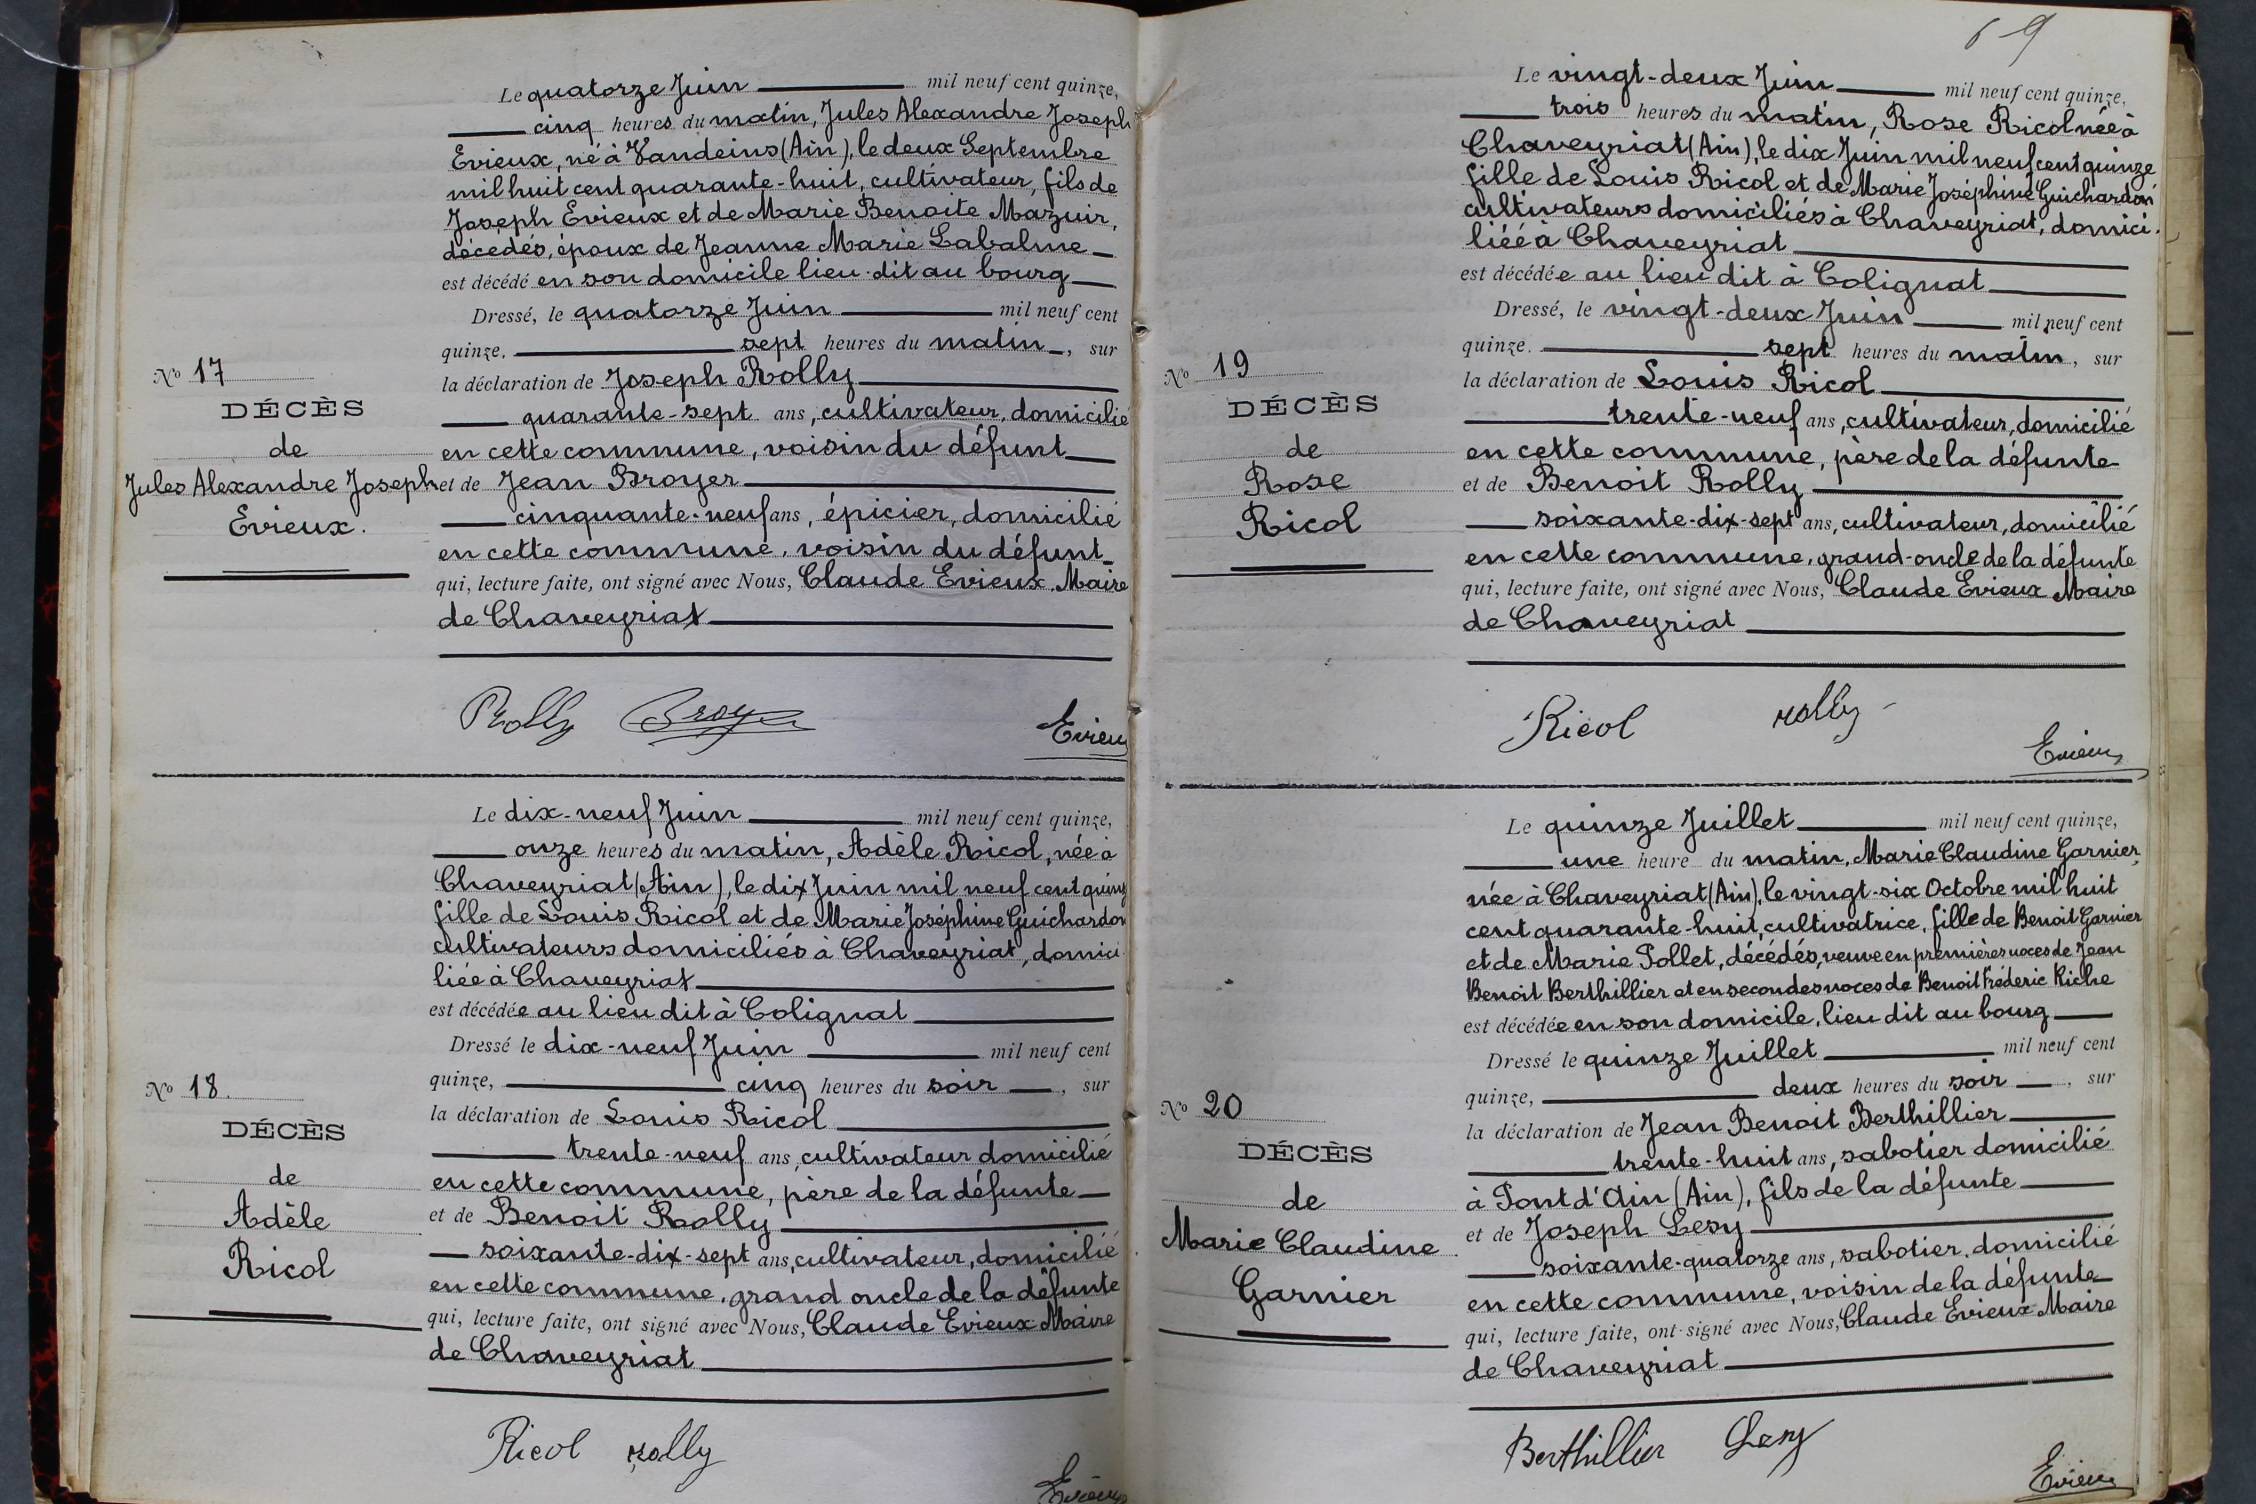 Le quatorze Juin mil neuf cent quinze,
cinq heures du matin, Jules Alexandre Joseph
Evieux, né à Vandeins (Ain), le deux Septembre
mil huit cent quarante-huit, cultivateur, fils de
Joseph Evieux et de Marie Benoite Mazuir,
décédés, époux de Jeanne Marie Labalme
est décédé en son domicile lieu-dit au bourg
Dressé, le quatorze Juin mil neuf cent
quinze, sept heures du matin, sur
No 17
la déclaration de Joseph Rolly
DÉCÈS
quarante-sept ans, cultivateur, domicilié
de
en cette commune, voisin du défunt
Jules Alexandre Joseph
et de Jean Broyer
Evieux.
cinquante-neuf ans, épicier, domicilié
en cette commune, voisin du défunt
qui, lecture faite, ont signé avec Nous, Claude Evieux, Maire
de Chaveyriat
Rolly Broyer Evieux
Le dix-neuf Juin mil neuf cent quinze,
onze heures du matin, Adèle Ricol, née à
Chaveyriat (Ain), le dix Juin mil neuf cent quinze
fille de Louis Ricol et de Marie Joséphine Guichardon
cultivateurs domiciliés à Chaveyriat, domici-
liée à Chaveyriat
est décédée au lieu dit à Colignat
Dressé le dix-neuf Juin mil neuf cent
quinze, cinq heures du soir, sur
No 18.
la déclaration de Louis Ricol
DÉCÈS
trente-neuf ans, cultivateur domicilié
de
en cette commune, père de la défunte
Adèle
et de Benoit Rolly
Ricol
soixante-dix-sept ans, cultivateur, domicilié
en cette commune, grand oncle de la défunte
qui, lecture faite, ont signé avec Nous, Claude Evieux Maire
de Chaveyriat
Ricol rolly Evieux
69
Le vingt-deux Juin mil neuf cent quinze,
trois heures du matin, Rose Ricol née à
Chaveyriat (Ain), le dix Juin mil neuf cent quinze
fille de Louis Ricol et de Marie Joséphine Guichardon
cultivateurs domiciliés à Chaveyriat, domici-
liéé à Chaveyriat
est décédée au lieu dit à Colignat
Dressé, le vingt-deux Juin mil neuf cent
quinze. sept heures du matin, sur
No 19
la déclaration de Louis Ricol
DÉCÈS
trente-neuf ans, cultivateur, domicilié
de
en cette commune, père de la défunte
Rose
et de Benoit Rolly
Ricol
soixante-dix-sept ans, cultivateur, domicilié
en cette commune, grand-oncle de la défunte
qui, lecture faite, ont signé avec Nous, Claude Evieux Maire
de Chaveyriat
Ricol rolly Evieux
Le quinze Juillet mil neuf cent quinze,
une heure du matin, Marie Claudine Garnier,
née à Chaveyriat (Ain), le vingt-six Octobre mil huit
cent quarante-huit, cultivatrice, fille de Benoit Garnier
et de Marie Pollet, décédés, veuve en premières noces de Jean
Benoit Berthillier et en secondes noces de Benoit Fréderic Riche
est décédée en son domicile, lieu dit au bourg
Dressé le quinze Juillet mil neuf cent
quinze, deux heures du soir, sur
No 20
la déclaration de Jean Benoit Berthillier
DÉCÈS
trente-huit ans, sabotier domicilié
de
à Pont d'Ain (Ain), fils de la défunte
Marie Claudine
et de Joseph Lesy
Garnier
soixante-quatorze ans, sabotier, domicilié
en cette commune, voisin de la défunte
qui, lecture faite, ont signé avec Nous, Claude Evieux Maire
de Chaveyriat
Berthillier Lesy Evieux